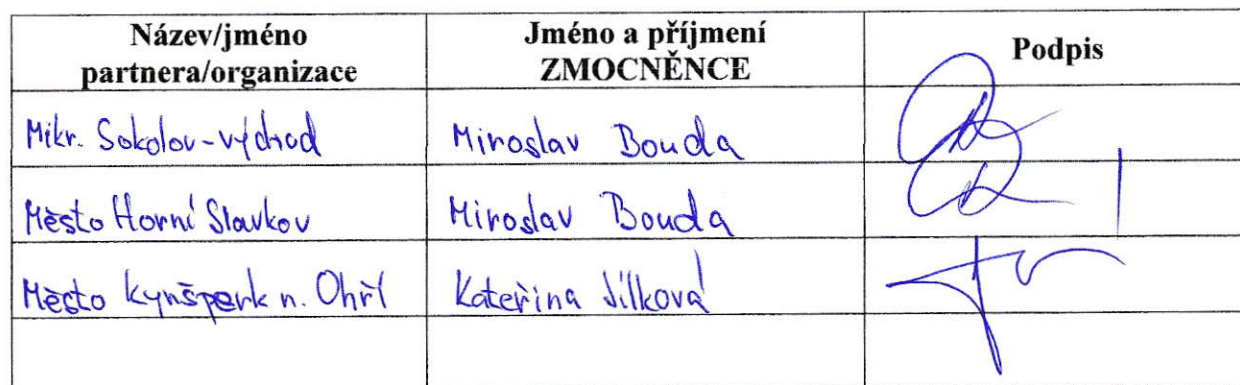 Název/jméno
partnera/organizace
Jméno a příjmení
ZMOCNĚNCE
Podpis
Mikr. Sokolov-východ Miroslav Bouda
Město Horní Slavkov Miroslav Bouda
Město Kynšperk n. Ohří Kateřina Jílková